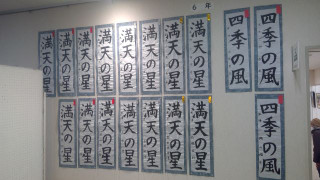 6年
満天の星
満天の星
満天の星
満天の星
満天の星
満天の星
満天の星
満天の星
四季の風
四季の風
満天の星
満天の星
満天の星
満天の星
満天の星
満天の星
満天の星
四季の風